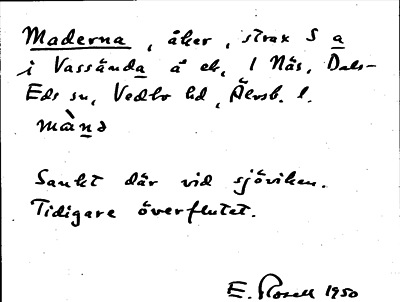 Maderna, åker, strax S a
i Vassända å ek, 1 Näs, Dals-
Eds sn, Vedbo hd, Älvsb. l.
Sankt där vid sjöviken.
Tidigare överflutet.
E. Rosell 1950